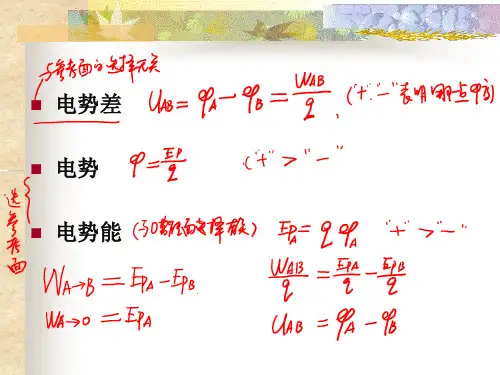 与参考面的选择无关
电势差 U_AB = φ_A − φ_B = W_AB/q ("+" "−"表明哪点φ高)
电势 φ = E_P/q ("+" > "−"
选参考面
电势能 (与0势能面选择有关) E_PA = qφ_A "+" > "−"
W_A→B = E_PA − E_PB W_AB/q = E_PA/q − E_PB/q
W_A→0 = E_PA U_AB = φ_A − φ_B